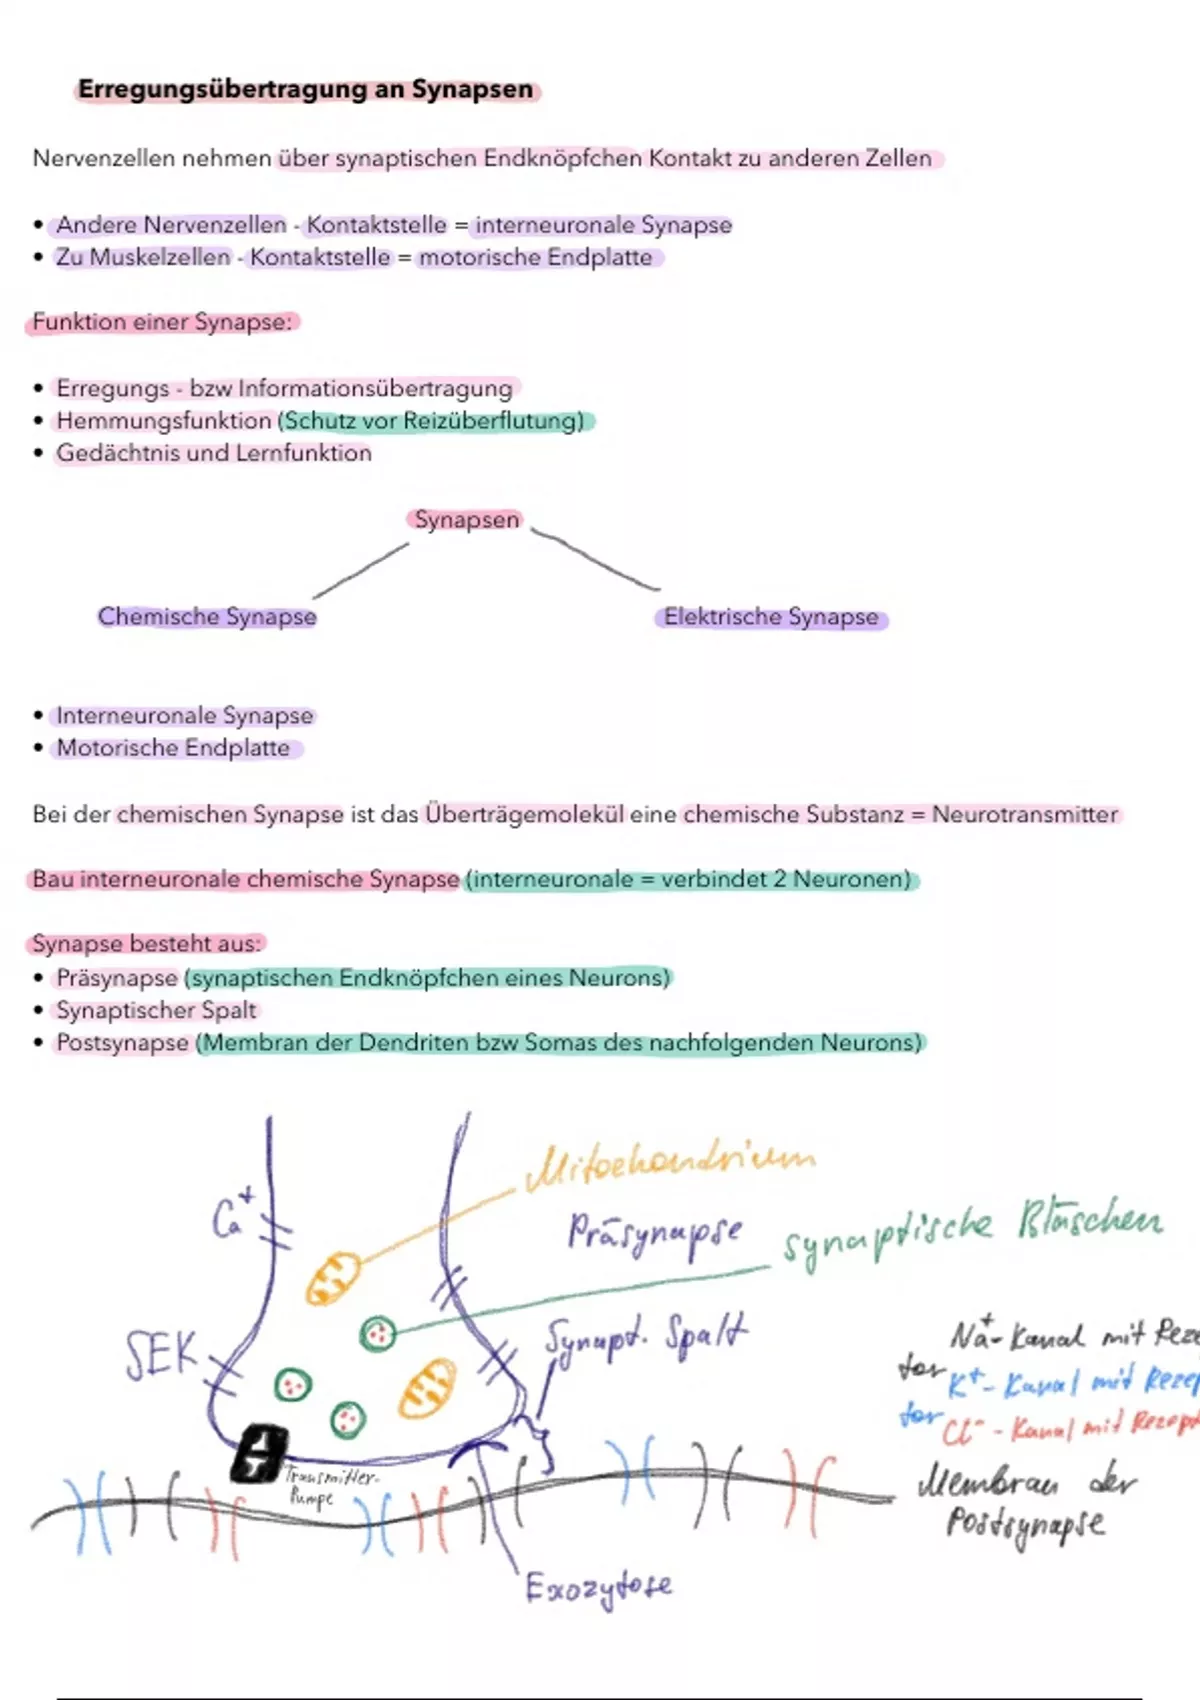 Erregungsübertragung an Synapsen
Nervenzellen nehmen über synaptischen Endknöpfchen Kontakt zu anderen Zellen
• Andere Nervenzellen - Kontaktstelle = interneuronale Synapse
• Zu Muskelzellen - Kontaktstelle = motorische Endplatte
Funktion einer Synapse:
• Erregungs - bzw Informationsübertragung
• Hemmungsfunktion (Schutz vor Reizüberflutung)
• Gedächtnis und Lernfunktion
Synapsen
Chemische Synapse
Elektrische Synapse
• Interneuronale Synapse
• Motorische Endplatte
Bei der chemischen Synapse ist das Überträgemolekül eine chemische Substanz = Neurotransmitter
Bau interneuronale chemische Synapse (interneuronale = verbindet 2 Neuronen)
Synapse besteht aus:
• Präsynapse (synaptischen Endknöpfchen eines Neurons)
• Synaptischer Spalt
• Postsynapse (Membran der Dendriten bzw Somas des nachfolgenden Neurons)
Mitochondrium
Ca+
Präsynapse
synaptische Bläschen
SEK
Synapt. Spalt
Na+-Kanal mit Reze
tor
K+-Kanal mit Rezep
tor
Cl- -Kanal mit Rezept
Transmitter-
Pumpe
Membran der
Postsynapse
Exozytose